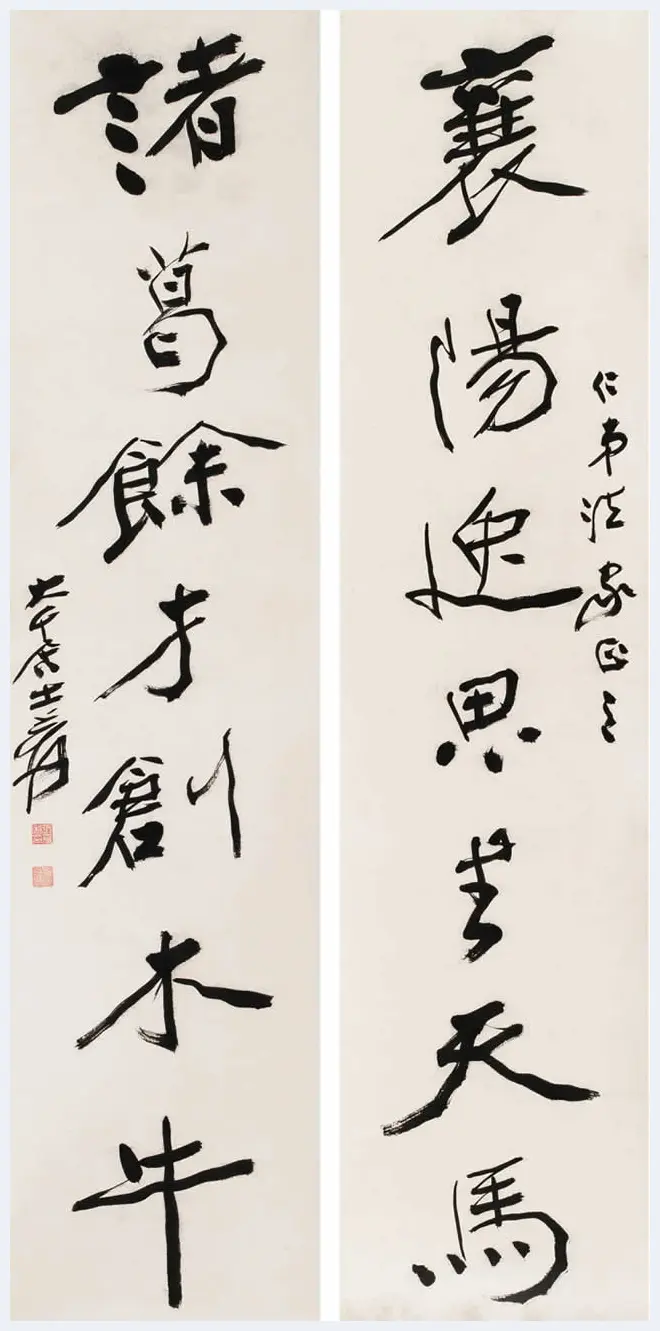 仁弟法家正之
襄陽逸思書天馬
諸葛餘才創木牛
大千居士爰